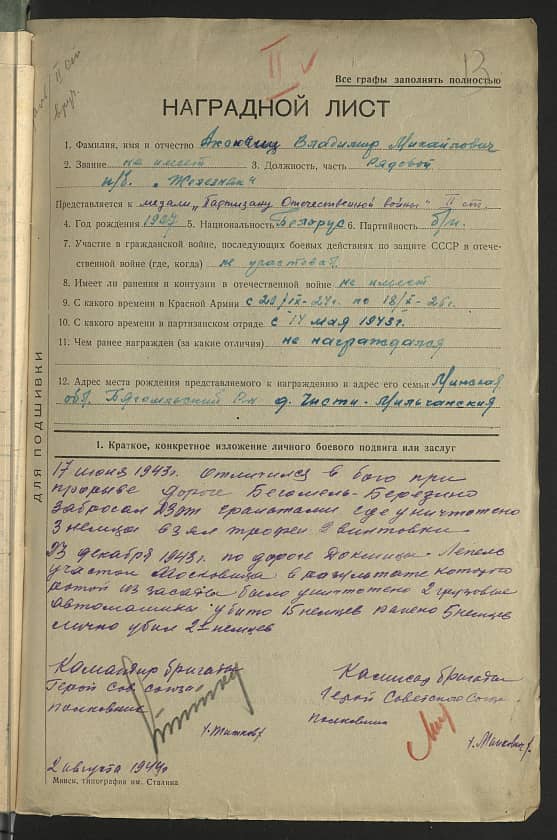 II
13
Все графы заполнять полностью
НАГРАДНОЙ ЛИСТ
1. Фамилия, имя и отчество Владимир Михайлович
2. Звание не имеет 3. Должность, часть рядовой
п/б. „Железняк“
Представляется к медали „Партизану Отечественной войны“ II ст.
4. Год рождения 1907 5. Национальность Беларус 6. Партийность б/п.
7. Участие в гражданской войне, последующих боевых действиях по защите СССР в отече-
ственной войне (где, когда) не участвовал
8. Имеет ли ранения и контузии в отечественной войне не имеет
9. С какого времени в Красной Армии с по
10. С какого времени в партизанском отряде с 14 мая 1943г.
11. Чем ранее награжден (за какие отличия) не награждался
12. Адрес места рождения представляемого к награждению и адрес его семьи Минская
обл. Бягомльский д. Чисти-Мильчанския
ДЛЯ ПОДШИВКИ
1. Краткое, конкретное изложение личного боевого подвига или заслуг
17 июня 1943г. Отличился в бою при
прорыве дороги Бегомель-Березино
забросал ДЗОТ гранатами где уничтожено
3 немца взял трофеи винтовки
23 декабря 1943г. по дороге Докшицы-Лепель
участок Московица в результате которого
ротой из засады было уничтожено 2 грузовые
автомашины убито 15 немцев ранено 5 немцев
лично убил 2х немцев
Командир бригады
Герой Сов. союза
полковник
/Титков/
Комисар бригады
Герой Советского Союза
полковник
/Манкович/
2 августа 1944г
Минск, типография им. Сталина